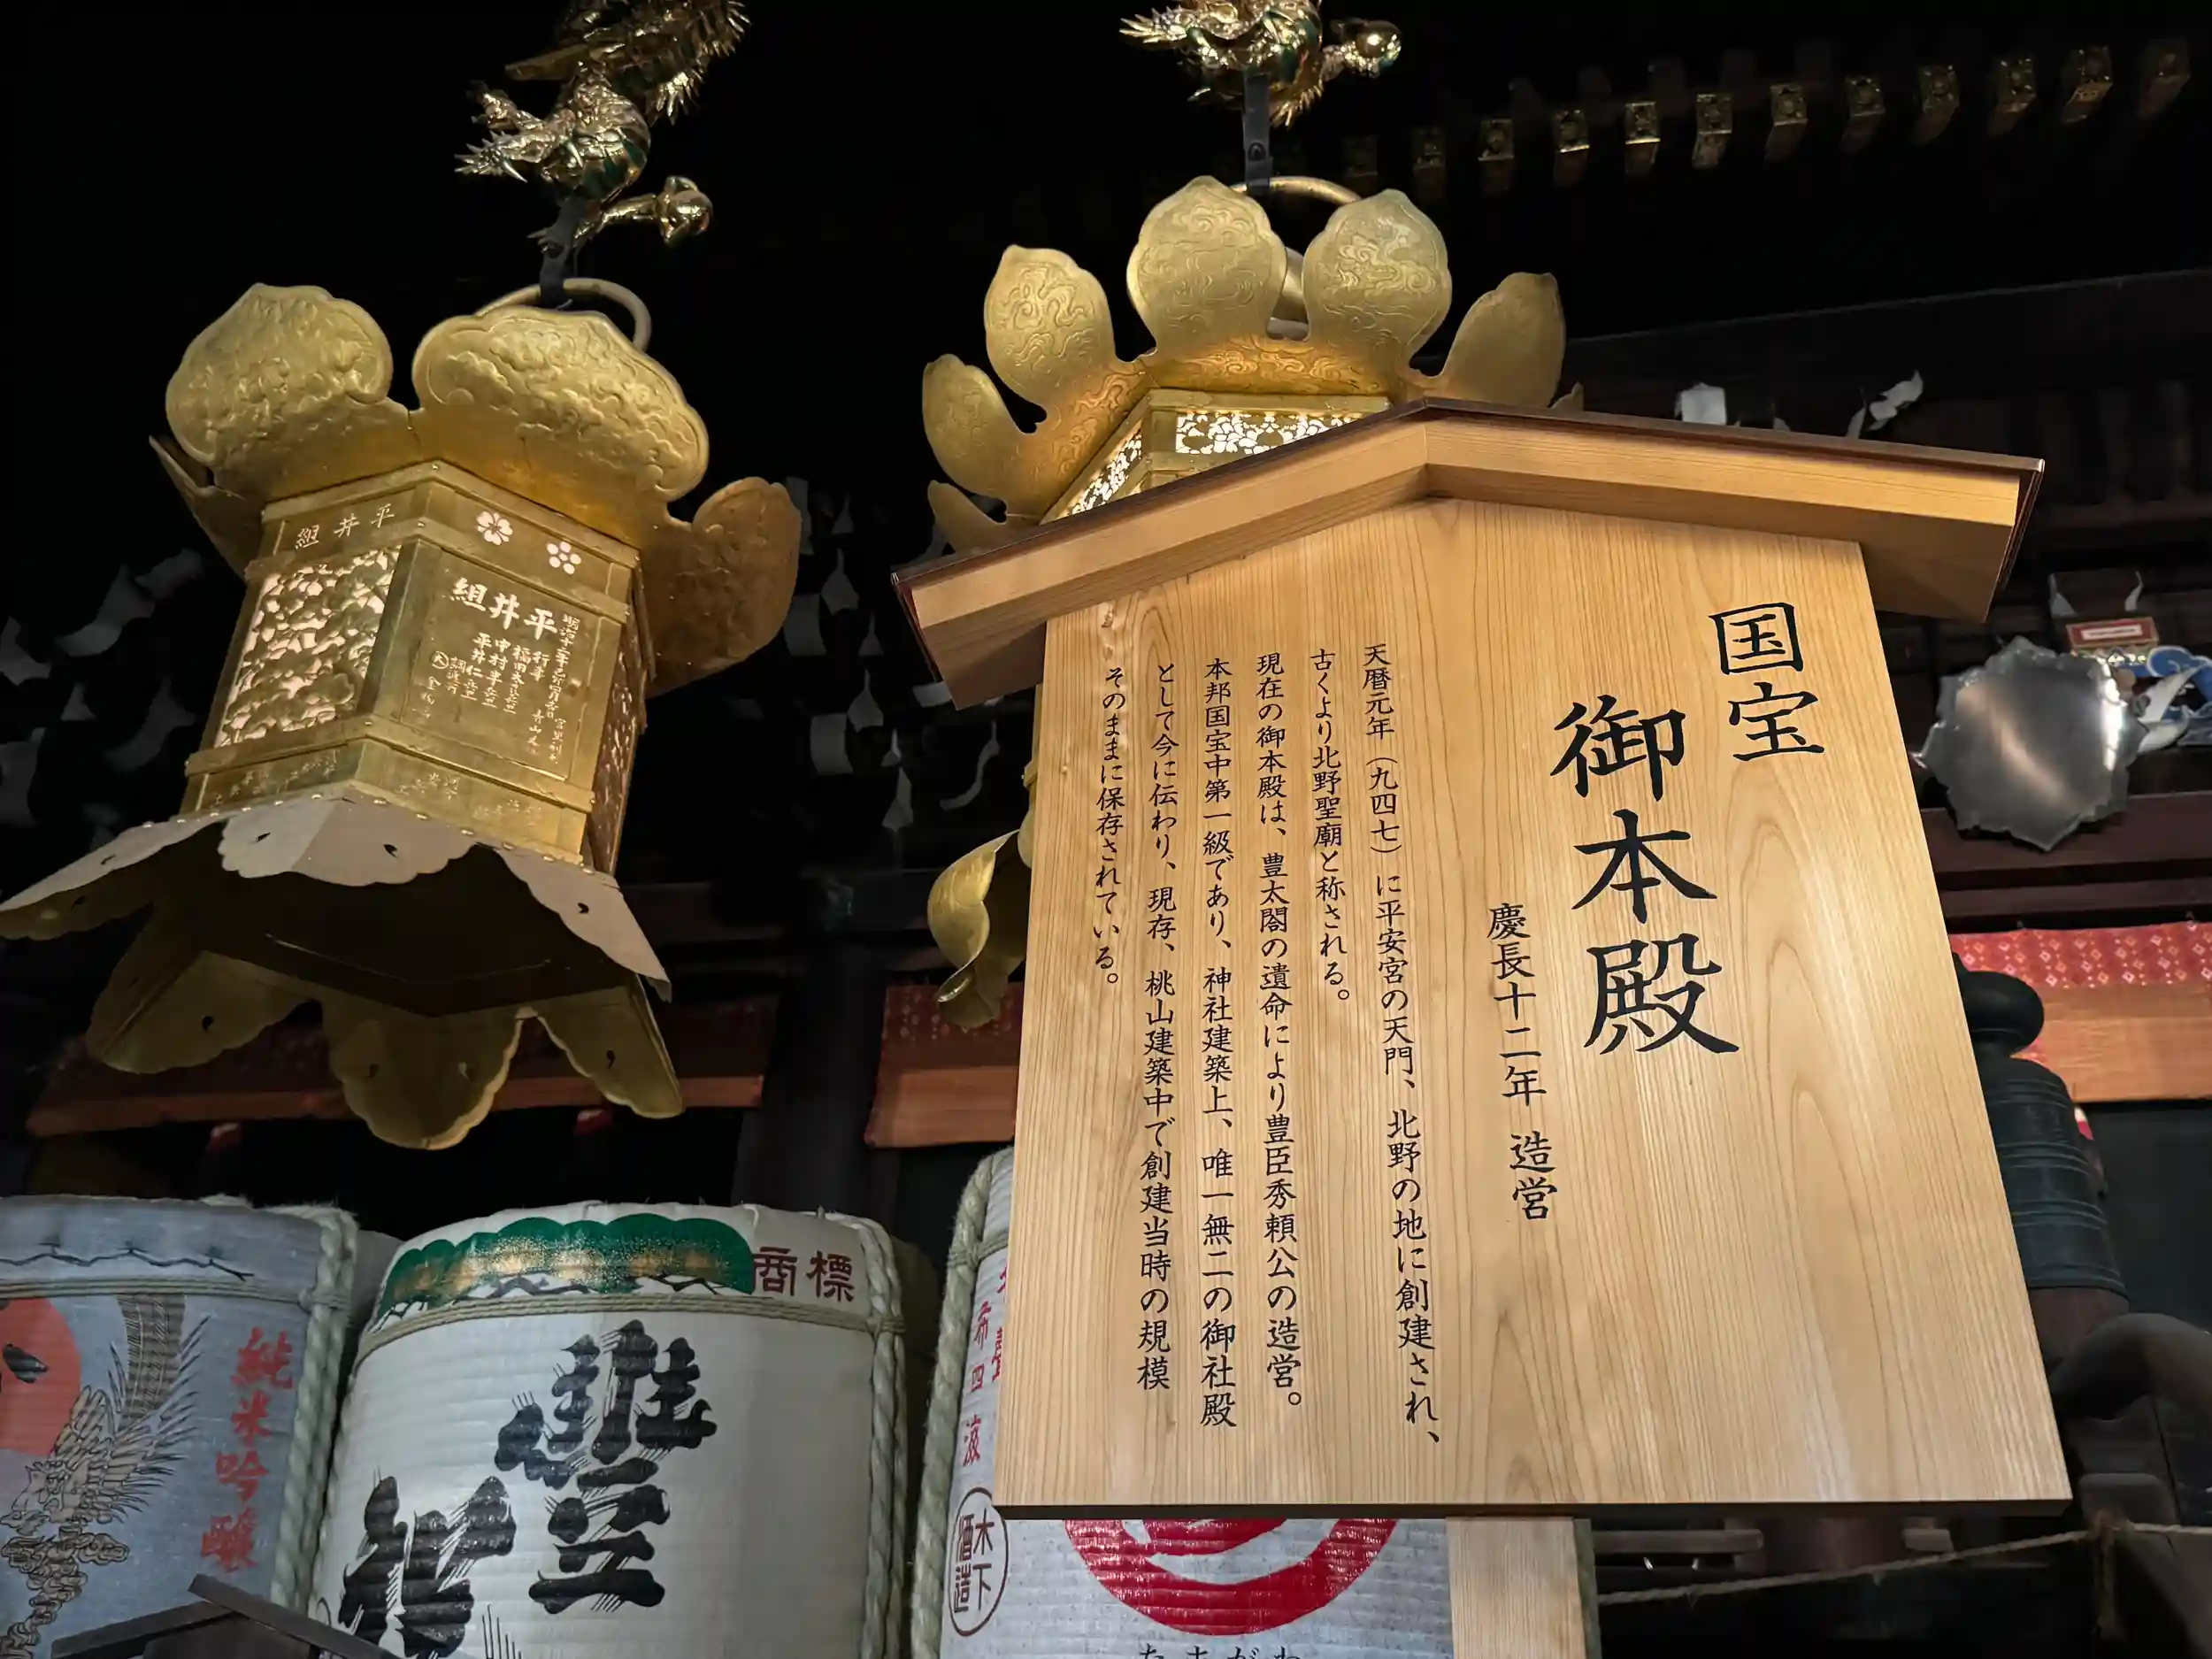 国宝
御本殿
慶長十二年 造営
天暦元年（九四七）に平安宮の天門、北野の地に創建され、
古くより北野聖廟と称される。
現在の御本殿は、豊太閤の遺命により豊臣秀頼公の造営。
本邦国宝中第一級であり、神社建築上、唯一無二の御社殿
として今に伝わり、現存、桃山建築中で創建当時の規模
そのままに保存されている。
組井平
組井平
商標
純米吟醸
木下
酒造
たまがわ